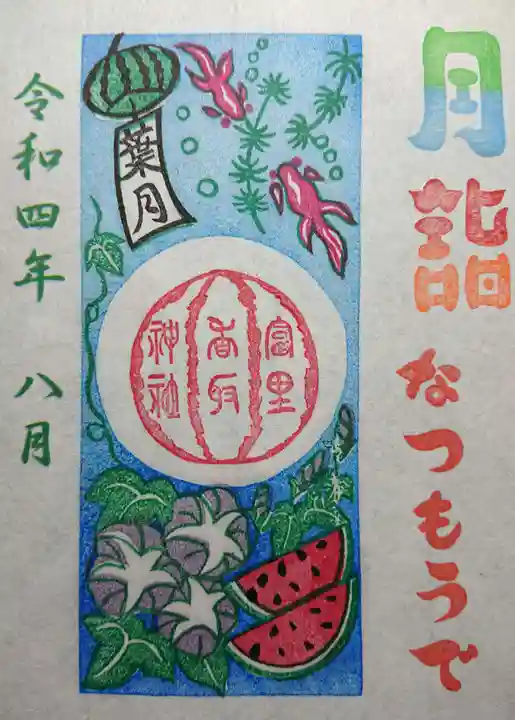 月詣
なつもうで
葉月
富里
香取
神社
令和四年 八月